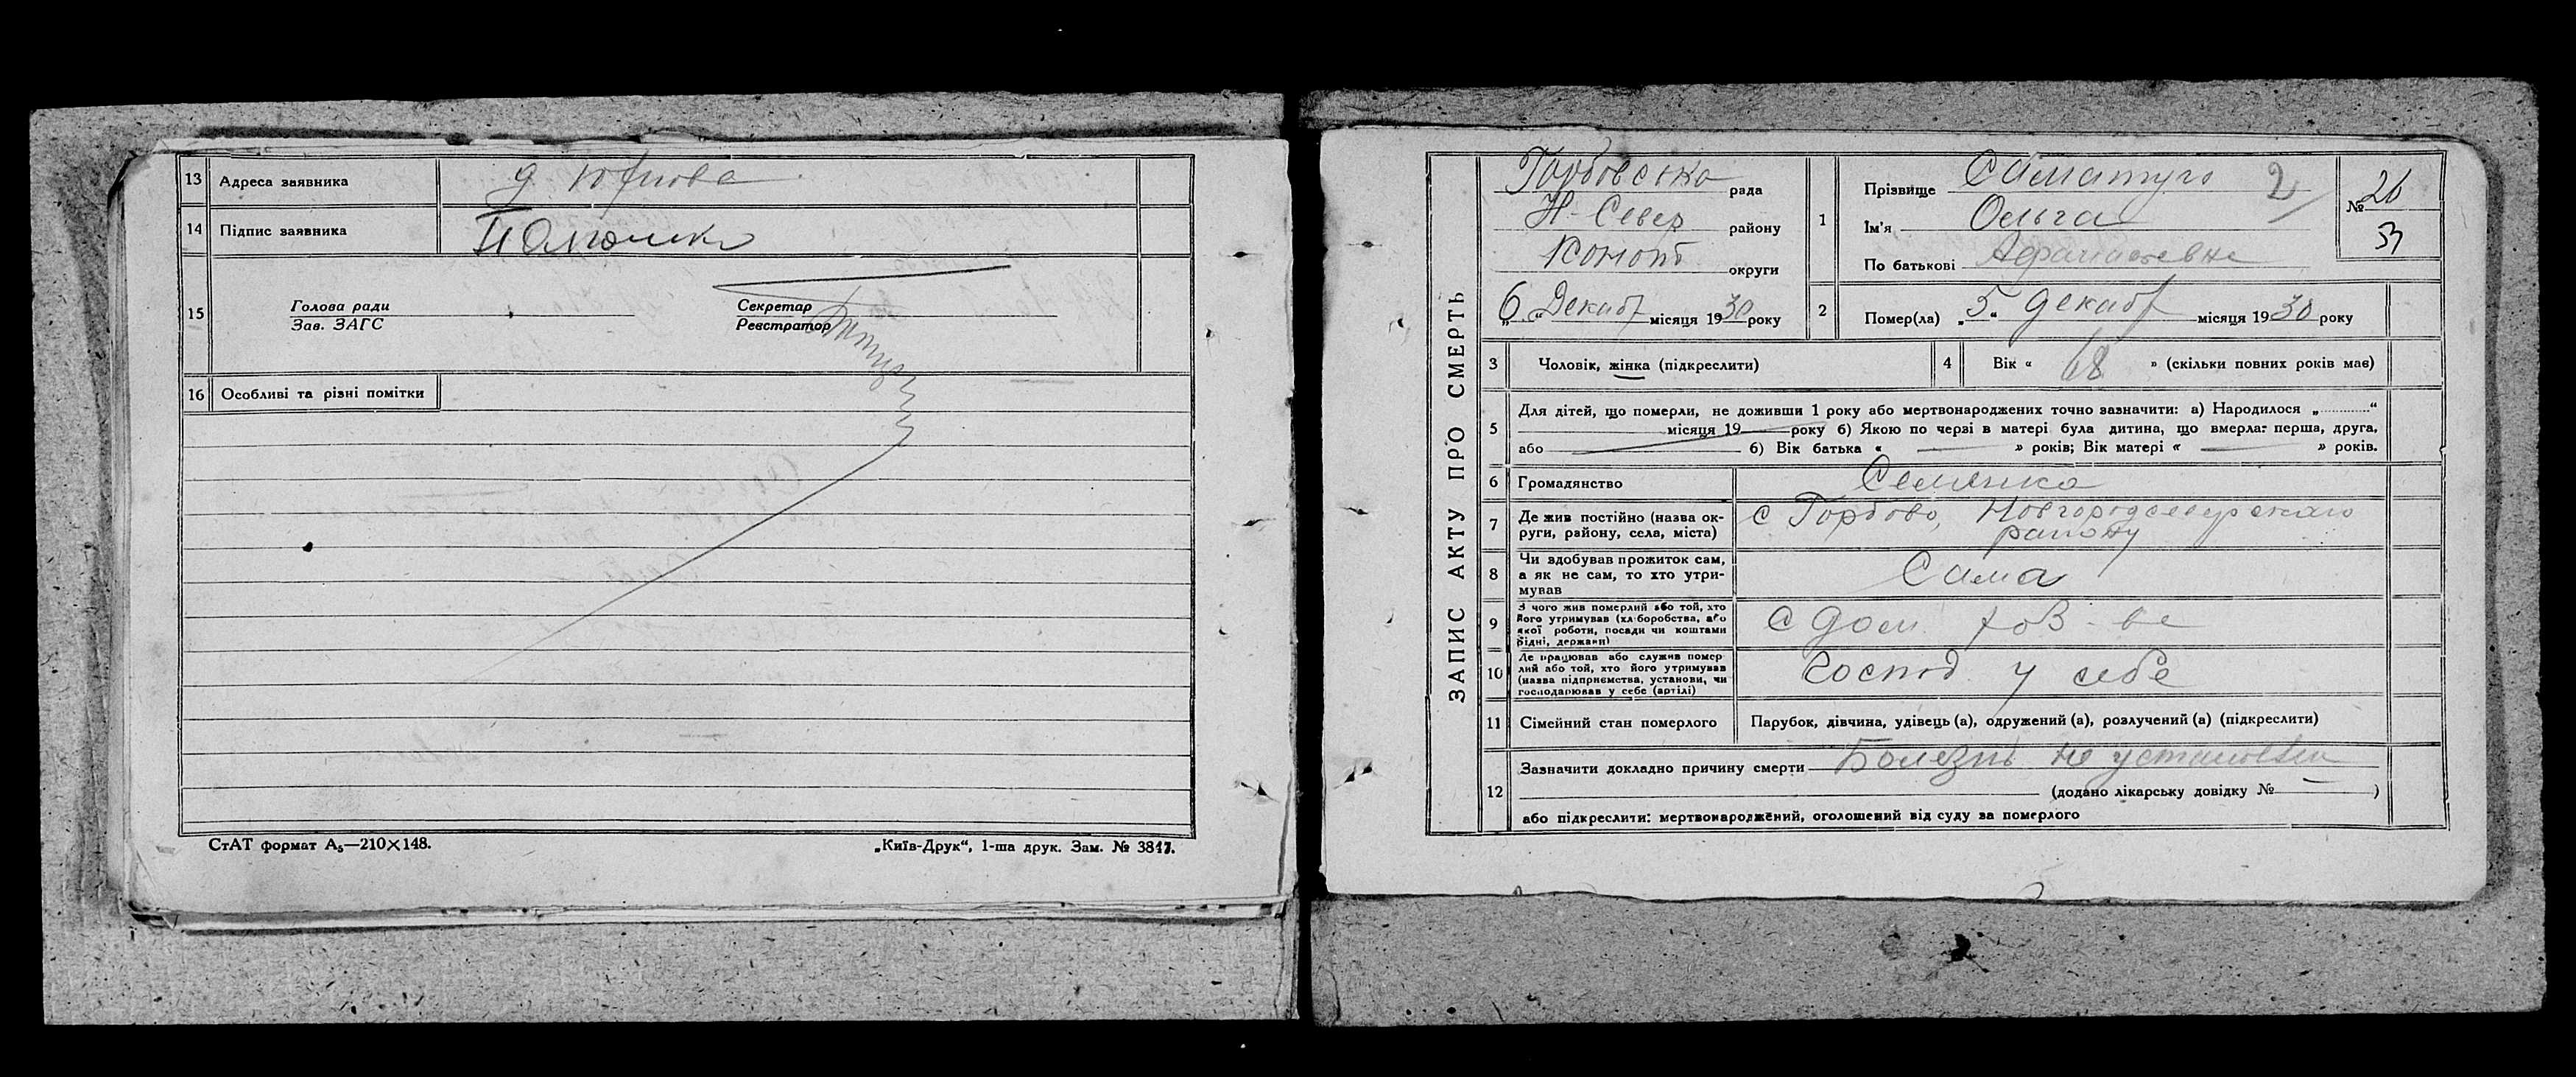 13 Адреса заявника
14 Підпис заявника
15 Голова ради
Зав. ЗАГС
Секретар
Реєстратор
16 Особливі та різні помітки
СтАТ формат А₅—210×148.
„Київ-Друк“, 1-ша друк. Зам. № 3817.
ЗАПИС АКТУ ПРО СМЕРТЬ
Горбовська рада
Н-Север району
Коноп округи
„6“ Декабр місяця 1930 року
1
Прізвище 2
Ім'я Ольга
По батькові Афанасьевне
№ 26
2 Помер(ла) „5“ декабр місяця 1930 року
3 Чоловік, жінка (підкреслити)
4 Вік « 68 » (скільки повних років має)
5 Для дітей, що померли, не доживши 1 року або мертвонароджених точно зазначити: а) Народилося „............“
місяця 19 року б) Якою по черзі в матері була дитина, що вмерла: перша, друга,
або б) Вік батька « » років; Вік матері « » років.
6 Громадянство
7 Де жив постійно (назва ок-
руги, району, села, міста)
с Горбово, Новгородсеверскаго
району
8 Чи здобував прожиток сам,
а як не сам, то хто утри-
мував
Сама
9 З чого жив померлий або той, хто
його утримував (хліборобства, або
якої роботи, посади чи коштами
рідні, держави)
С дом хоз-ве
10 Де працював або служив помер
лий або той, хто його утримував
(назва підприємства, установи, чи
господарював у себе (артілі)
Господ у себе
11 Сімейний стан померлого
Парубок, дівчина, удівець (а), одружений (а), розлучений (а) (підкреслити)
12 Зазначити докладно причину смерти Болезнь не установлен
(додано лікарську довідку № )
або підкреслити: мертвонароджений, оголошений від суду за померлого